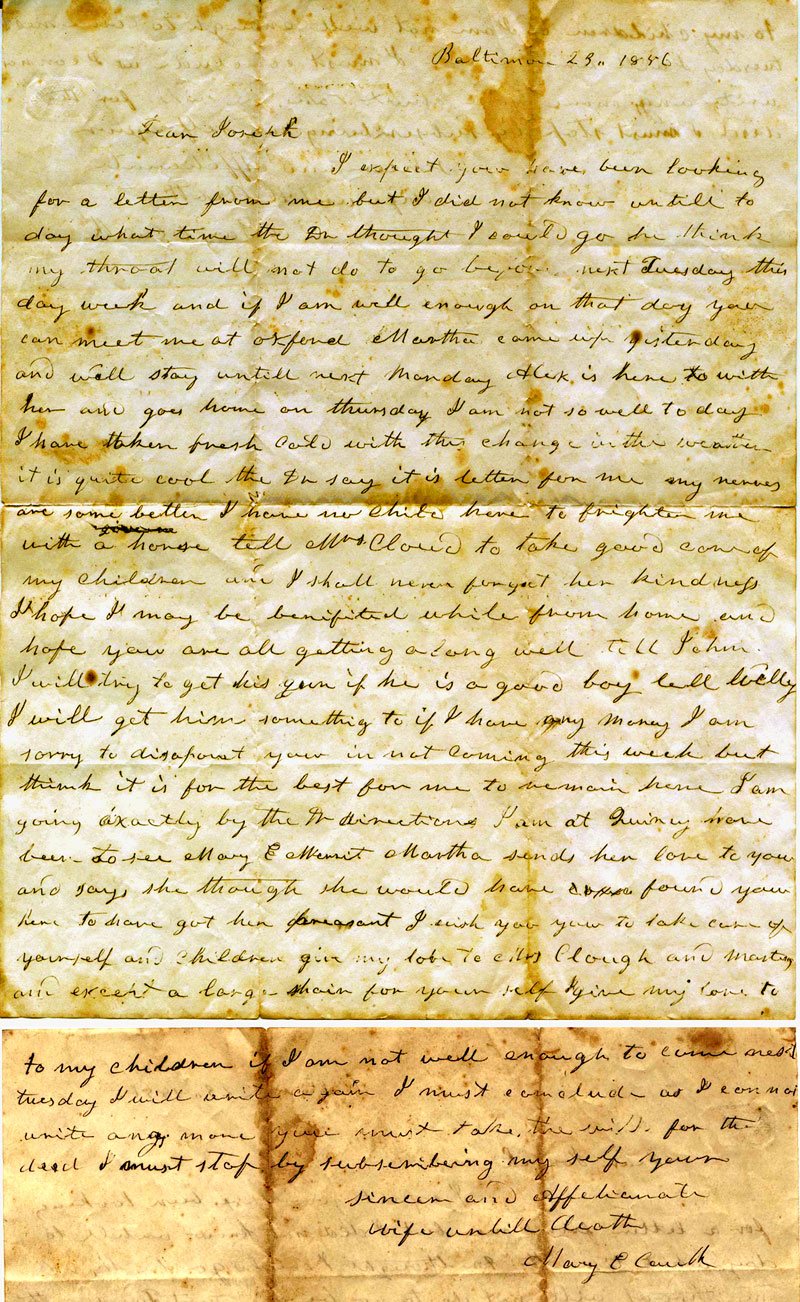 Baltimore 23 1856
Dear Joseph
I expect you have been looking
for a letter from me but I did not know untill to
day what time the Dr thought I could go he think
my throat will not do to go before next Tuesday this
day week and if I am well enough on that day you
can meet me at oxford Martha came up yisterday
and will stay untill next Monday Alex is here to with
her and goes home on thursday I am not so well to day
I have taken fresh cold with this change in the weather
it is quite cool the Dr say it is better for me my nerves
are some better I have no child here to frighten me
with a horse tell Mrs Cloud to take good care of
my children and I shall never forget her kindness
I hope I may be benifited while from home and
hope you are all getting along well tell John
I will try to get his gun if he is a good boy tell Willy
I will get him somethig to if I have any money I am
sorry to disapoint you in not coming this week but
think it is for the best for me to remain here I am
going exactly by the Dr directions I am at Quincy have
been to see Mary E Merrit Martha sends her love to you
and says she though she would have found you
here to have got her preasant I wish you you to take care of
yourself and children give my love to Mrs Clough and
and except a large shair for your self I give my love to
to my children if I am not well enough to come next
tuesday I will write again I must conclude as I connot
write any more you must take the will for the
deed I must stop by subscribeing my self your
sincere and Affetionate
wife untill death
Mary E Caulk